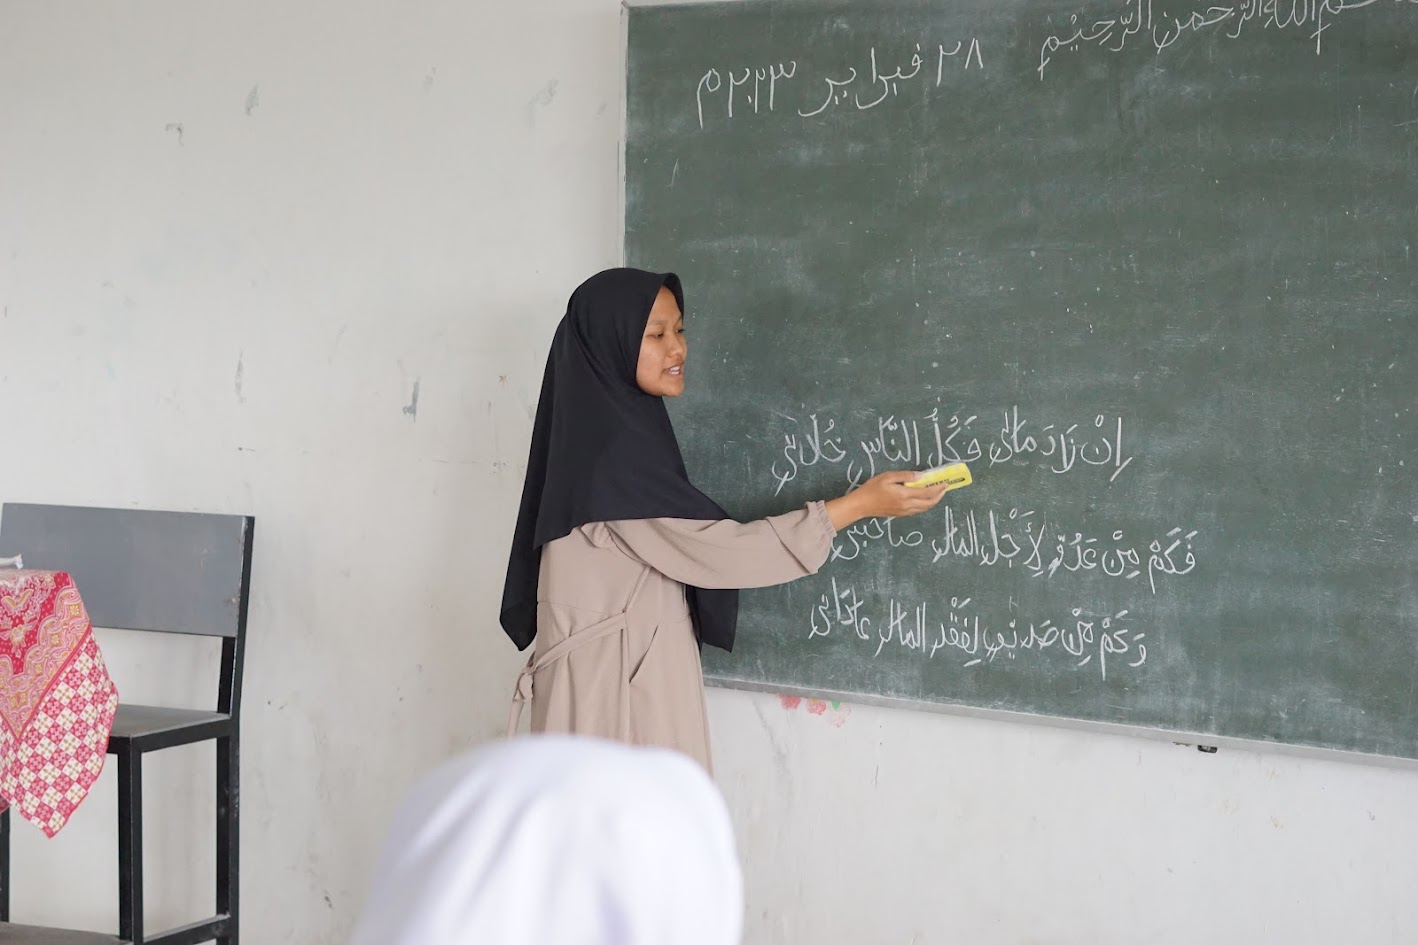 بسم اللهِ الرَّحمنِ الرَّحِيْمِ
٢٨ فبراير ٢٠٢٣م
إِنْ زَادَ مَالِي فَكُلُّ النَّاسِ خُلَّانِي
فَكَمْ مِنْ عَدُوٍّ لِأَجْلِ المَالِ صَاحَبَنِي
وَكَمْ مِنْ صَدِيْقٍ لِفَقْدِ المَالِ عَادَانِي